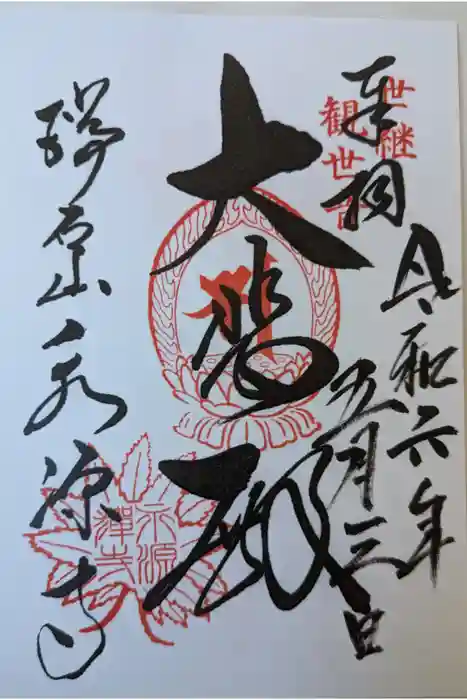 令和六年
五月三日
奉拝
世継
観世音
大悲殿
瑞石山永源寺
永源
禅寺